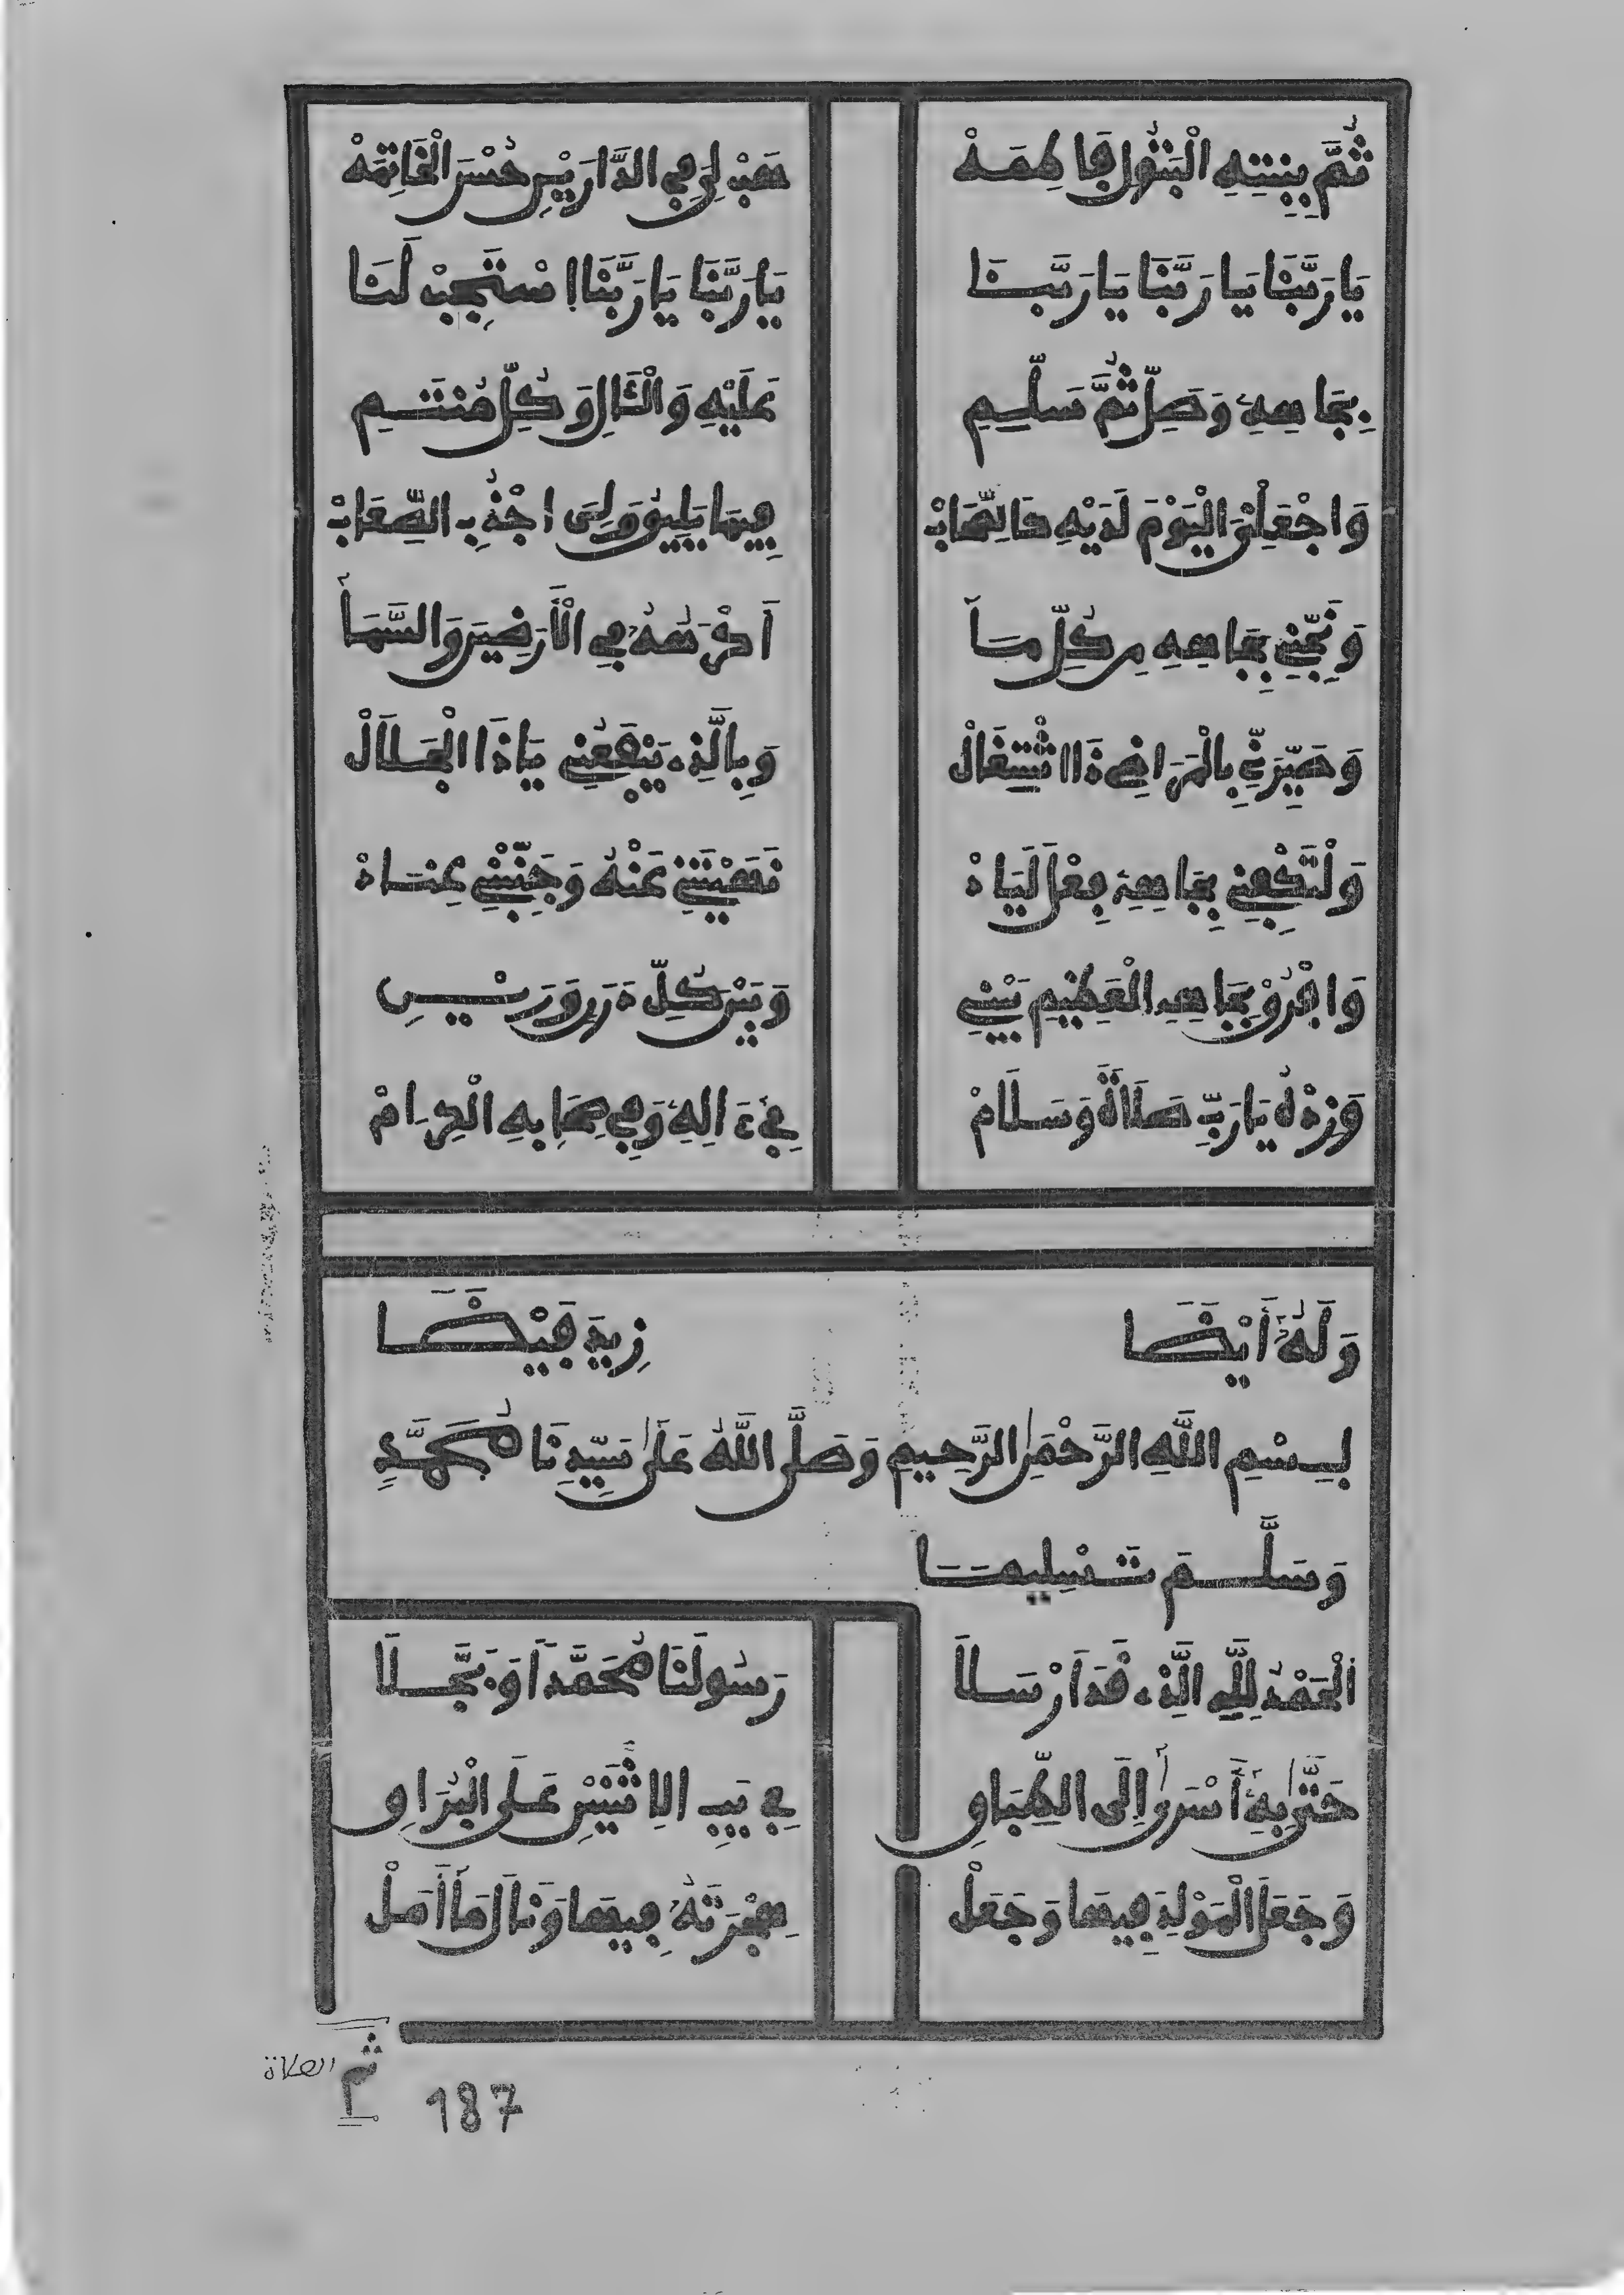 ثُمَّ بِبِنْتِهِ الْبَتُولِ فَاطِمَهْ هَبْ لِي فِي الدَّارَيْنِ حُسْنَ الْخَاتِمَهْ
يَا رَبَّنَا يَا رَبَّنَا يَا رَبَّنَا يَا رَبَّنَا يَا رَبَّنَا اسْتَجِبْ لَنَا
بِجَاهِهِ وَصَلِّ ثُمَّ سَلِّمِ عَلَيْهِ وَالْآلِ وَكُلِّ مُنْتَمِ
وَاجْعَلْنِي الْيَوْمَ لَدَيْهِ كَالصِّحَابْ فِيمَا يَلِينِي وَلِيَ اجْذِبِ الصِّعَابْ
وَنَجِّنِي بِجَاهِهِ مِن كُلِّ مَا أَكْرَهُهُ فِي الْأَرَضِينَ وَالسَّمَا
وَصَيِّرَنِّي بِالْمَرَاضِي ذَا اشْتِغَالْ وَبِالَّذِي يَنْفَعُنِي يَا ذَا الْجَلَالْ
وَلْتَكْفِنِي بِجَاهِهِ فِعْلَ لِيَاهْ نَهَيْتَنِي عَنْهُ وَجَنِّبْنِي عِنَاهْ
وَافْرُقْ بِجَاهِهِ الْعَظِيمِ بَيْنِي وَبَيْنَ كُلِّ دَرَنٍ وَرَيْنِ
وَزِدْهُ يَا رَبِّ صَلَاةً وَسَلَامْ فِي ءَالِهِ وَفِي صِحَابِهِ الْكِرَامْ
وَلَهُ أَيْضًا زِيدَ فَيْضًا
بِسْمِ اللَّهِ الرَّحْمَنِ الرَّحِيمِ وَصَلَّى اللَّهُ عَلَى سَيِّدِنَا مُحَمَّدٍ
وَسَلَّمَ تَسْلِيمَا
الْحَمْدُ لِلَّهِ الَّذِي قَدَ ارْسَلَا رَسُولَنَا مُحَمَّدًا وَبَجَّلَا
حَتَّى بِهِ أَسْرَى إِلَى الطِّبَاقِ فِي لَيْلَةِ الِاثْنَيْنِ عَلَى الْبُرَاقِ
وَجَعَلَ الْمَوْلِدَ فِيهَا وَجَعَلْ هِجْرَتَهُ فِيهَا وَنَالَ مَا أَمَلْ
ثم الصلاة
187